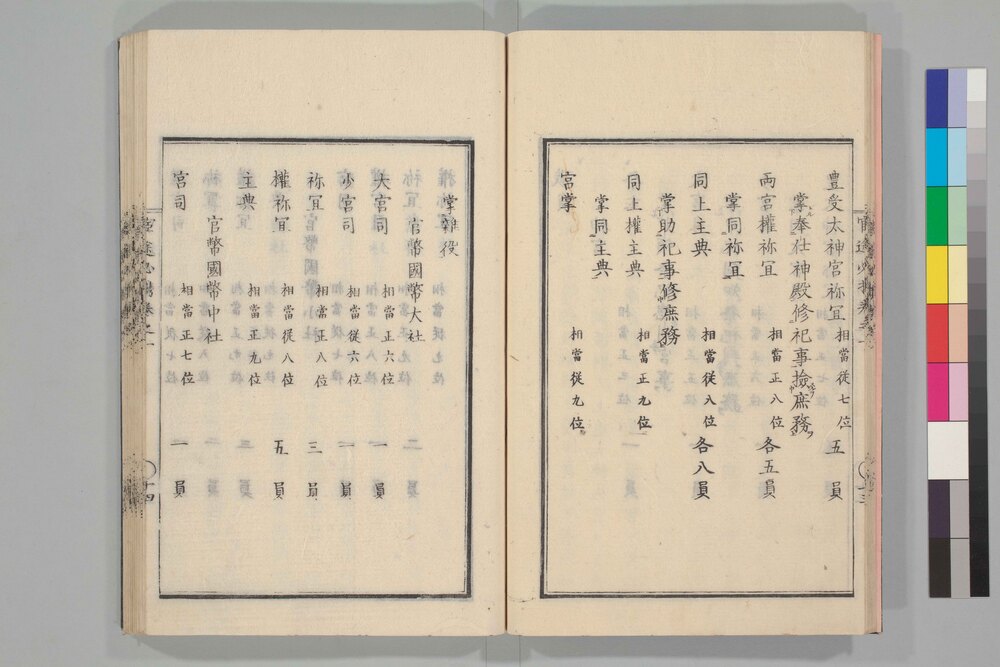 豊受太神宮祢冝 相當従七位 五員
掌奉仕神殿修祀事撿庶務
両宮權祢冝 相當正八位 各五員
掌同祢冝
同上主典 相當従八位 各八員
掌助祀事修庶務
同上權主典 相當正九位
掌同主典
宮掌 相當従九位
掌雜役
官幣國幣大社
大宮司 相當正六位 一員
少宮司 相當従六位 一員
祢冝 相當正八位 三員
權祢冝 相當従八位 五員
主典 相當正九位 員
官幣國幣中社
宮司 相當正七位 一員
十四